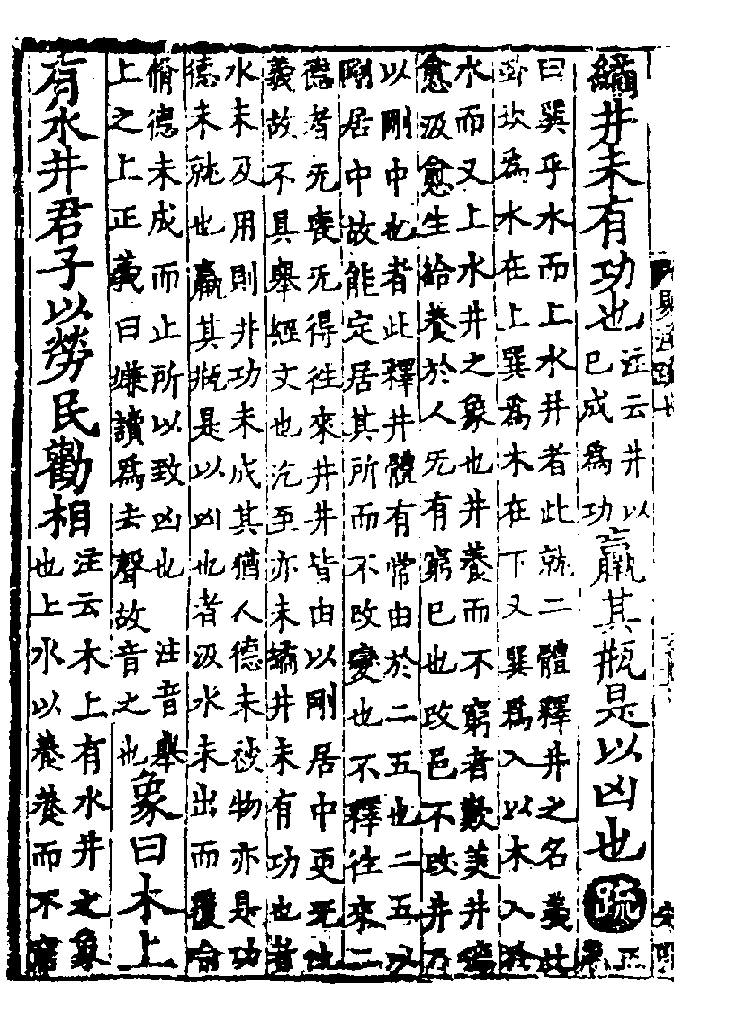 繘井未有功也
注云井以
已成爲功
羸其瓶是以凶也疏
正
義
曰巽乎水而上水井者此就二體釋井之名義此
卦坎爲水在上巽爲木在下又巽爲入以木入於
水而又上水井之象也井養而不窮者歎美井德
愈汲愈生給養於人无有窮已也改邑不改井乃
以剛中也者此釋井體有常由於二五也二五以
剛居中故能定居其所而不改變也不釋往來二
德者无喪无得往來井井皆由以剛居中更无他
義故不具舉經文也汔至亦未繘井未有功也者
水未及用則井功未成其猶人德未被物亦是功
德未就也羸其瓶是以凶也者汲水未出而覆喻
脩德未成而止所以致凶也 注音舉
上之上正義曰嫌讀爲去聲故音之也
象曰木上
有水井君子以勞民勸相
注云木上有水井之象
也上水以養養而不窮